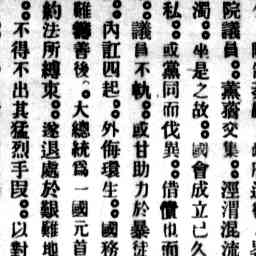 院議員。薰蕕交集。涇渭混流
濁。坐是之故。國會成立已久
私。或黨同而伐異。借債也而
議員不軌。或甘助力於暴徒
內訌四起。外侮環生。國務
難籌善後。大總統爲一國元首
約法所縛束。遂退處於艱難地
不得不出其猛烈手段。以對